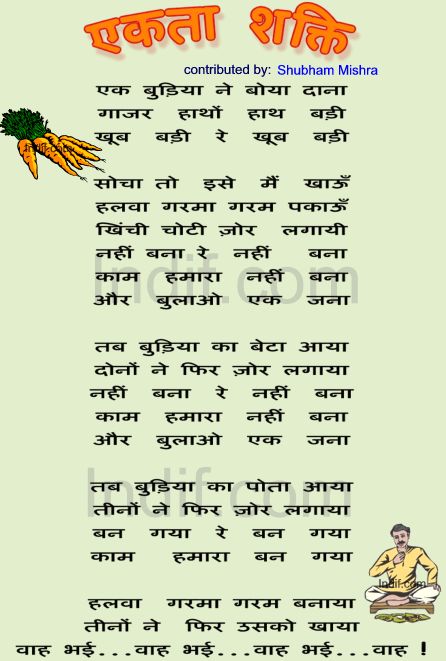 एकता शक्ति
contributed by: Shubham Mishra
एक बुड़िया ने बोया दाना
गाजर हाथों हाथ बड़ी
खूब बड़ी रे खूब बड़ी
Indif.com
सोचा तो इसे मैं खाऊँ
हलवा गरमा गरम पकाऊँ
खिंची चोटी ज़ोर लगायी
नहीं बना रे नहीं बना
Indif.com
काम हमारा नहीं बना
और बुलाओ एक जना
तब बुड़िया का बेटा आया
दोनों ने फिर ज़ोर लगाया
नहीं बना रे नहीं बना
काम हमारा नहीं बना
और बुलाओ एक जना
Indif.com
तब बुड़िया का पोता आया
तीनों ने फिर ज़ोर लगाया
बन गया रे बन गया
काम हमारा बन गया
Indif.com
हलवा गरमा गरम बनाया
तीनों ने फिर उसको खाया
वाह भई...वाह भई...वाह भई...वाह !